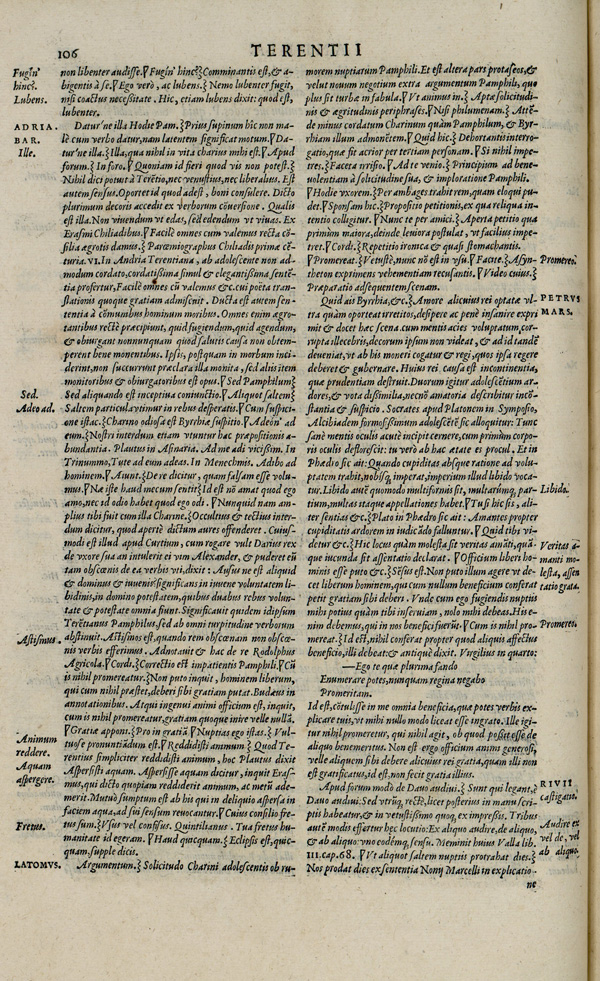 106
TERENTII
Fugin'
hinc?
Lubens.
ADRIA.
BAR.
Ille.
Sed.
Adeo ad.
Astismus.
Animum
reddere.
Aquam
aspergere.
Fretus.
LATOMVS.
non libenter audisse. Fugin' hinc? Comminantis est, & a-
bigentis à se. Ego verò, ac lubens. Nemo lubenter fugit,
nisi coactus necessitate. Hic, etiam lubens dixit: quod est,
lubenter.
Datur'ne illa Hodie Pam. Prius supinum hic non ma-
lè cum verbo datur, nam latentem significat motum. Da-
tur'ne illa. Illa, qua nihil in vita charius mihi est. Apud
forum. In foro. Quoniam id fieri quod vis non potest.
Nihil dici potuit à Terētio, nec venustius, nec liberalius. Est
autem sensus. Oportet id quod adest, boni consulere. Dicto
plurimum decoris accedit ex verborum cōuersione. Qualis
est illa. Non viuendum vt edas, sed edendum vt viuas. Ex
Erasmi Chiliadibus. Facilè omnes cum valemus recta cō-
silia ægrotis damus. Parœmiographus Chiliadis primæ cē-
turia. VI. In Andria Terentiana, ab adolescente non ad-
modum cordato, cordatissima simul & elegantissima sentē-
tia profertur, Facilè omnes cū valemus &c. cui poëta tran-
slationis quoque gratiam admiscuit. Ducta est autem sen-
tentia à cōmunibus hominum moribus. Omnes enim ægro-
tantibus rectè præcipiunt, quid fugiendum, quid agendum,
& obiurgant nonnunquam quòd salutis causa non obtem-
perent bene monentibus. Ipsi, postquam in morbum inci-
derint, non succurrunt præclara illa monita, sed aliis item
monitoribus & obiurgatoribus est opus. Sed Pamphilum
Sed aliquando est inceptiua coniunctio. Aliquot saltem
Saltem particula, vtimur in rebus desperatis. Cum suspici-
one istac. Charino odiosa est Byrrhiæ suspitio. Adeon' ad
eum. Nostri interdum etiam vtuntur hac præpositionis a-
bundantia. Plautus in Asinaria. Ad me adi vicissim. In
Trinummo, Tute ad eum adeas. In Menechmis. Adibo ad
hominem. Aiunt. De re dicitur, quam falsam esse volu-
mus. Næ iste haud mecum sentit. Id est nō amat quod ego
amo, nec id odio habet quod ego odi. Nunquid nam am-
plius tibi fuit cum illa Charine. Occultius & tectius inter-
dum dicitur, quod apertè dictum aures offenderet. Cuius-
modi est illud apud Curtium, cum rogare vult Darius rex
de vxore sua an intulerit ei vim Alexander, & puderet eū
tam obscœnis de ea verbis vti, dixit: Ausus ne est aliquid
& dominus & iuuenis? significans in iuuene voluntatem li-
bidinis, in domino potestatem, quibus duabus rebus volun-
tate & potestate omnia fiunt. Significauit quidem idipsum
Terētianus Pamphilus, sed ab omni turpitudine verborum
abstinuit. Astismos est, quando rem obscœnam non obscœ-
nis verbis efferimus. Adnotauit & hac de re Rodolphus
Agricola. Cordi. Correctio est impatientis Pamphili. Cū
is nihil promereatur. Non puto inquit, hominem liberum,
qui cum nihil præstet, deberi sibi gratiam putat. Budæus in
annotationibus. Atqui ingenui animi officium est, inquit,
cum is nihil promereatur, gratiam quoque inire velle nullā.
Gratiæ apponi. Pro in gratiā. Nuptias ego istas. Vul-
tuose pronuntiādum est. Reddidisti animum. Quod Te-
rentius simpliciter reddidisti animum, hoc Plautus dixit
Aspersisti aquam. Aspersisse aquam dicitur, inquit Eras-
mus, qui dicto quopiam reddiderit animum, ac metū ade-
merit. Mutuò sumptum est ab his qui in deliquio aspersa in
faciem aqua, ad sui sensum reuocantur. Cuius consilio fre-
tus sum. Vsus vel confisus. Quintilianus. Tua fretus hu-
manitate id egeram. Haud quicquam. Eclipsis est, quic-
quam, supple dicis.
Argumentum. Solicitudo Charini adolescentis ob ru-
morem nuptiarum Pamphili. Et est altera pars protaseos, &
velut nouum negotium extra argumentum Pamphili, quo
plus sit turbæ in fabula. Vt animus in. Apta solicitudi-
nis & ægritudinis periphrasis. Nisi philumenam. Attē-
de minus cordatum Charinum quàm Pamphilum, & Byr-
rhiam illum admonētem. Quid hic. Dehortanti interro-
gatio, quæ sit acrior per tertiam personam. Si nihil impe-
tres. Faceta irrisio. Ad te venio. Principium ad bene-
uolentiam à solicitudine sua, & imploratione Pamphili.
Hodie vxorem. Per ambages trahit rem, quam eloqui pu-
det. Sponsam hic. Propositio petitionis, ex qua reliqua in-
tentio colligitur. Nunc te per amici. Aperta petitio quæ
primùm maiora, deinde leuiora postulat, vt facilius impe-
tret. Cordi. Repetitio ironica & quasi stomachantis.
Promereat. Vetustè, nunc nō est in vsu. Facite. Asyn-
theton exprimens vehementiam recusantis. Video cuius.
Præparatio ad sequentem scenam.
Quid ais Byrrhia, &c. Amore alicuius rei optatæ vl-
tra quàm oporteat irretitos, desipere ac penè insanire expri
mit & docet hac scena. cum mentis acies voluptatum, cor-
rupta illecebris, decorum ipsum non videat, & ad id tandē
deueniat, vt ab his moneri cogatur & regi, quos ipsa regere
deberet & gubernare. Huius rei causa est incontinentia,
quæ prudentiam destruit. Duorum igitur adolescētium ar-
dores, & vota dissimilia, necnō amatoria describitur incō-
stantia & suspicio. Socrates apud Platonem in Symposio,
Alcibiadem formosissimum adolescētē sic alloquitur: Tunc
sanè mentis oculi acutè incipit cernere, cum primùm corpo-
ris oculus deflorescit: tu verò ab hac ætate es procul. Et in
Phædro sic ait: Quando cupiditas absque ratione ad volu-
ptatem trahit, nobisq; imperat, imperium illud libido voca-
tur. Libido autē quomodo multiformis sit, multarumq; par-
tium, multas itaque appellationes habet. Tu si hic sis, ali-
ter sentias &c. Plato in Phædro sic ait: Amantes propter
cupiditatis ardorem in iudicādo falluntur. Quid tibi vi-
detur &c. Hic locus quàm molesta sit veritas amāti, quā-
que iucunda sit assentatio declarat. Officium liberi ho-
minis esse puto &c. Sēsus est. Non puto illum agere vt de-
cet liberum hominem, qui cum nullum beneficium conferat
petit gratiam sibi deberi. Vnde cum ego fugiendis nuptiis
mihi potius quàm tibi inseruiam, nolo mihi debeas. His e-
nim debemus, qui in nos benefici fuerūt. Cum is nihil pro-
mereat. Id est, nihil conferat propter quod aliquis affectus
beneficio, illi debeat: & antiquè dixit. Virgilius in quarto:
—Ego te quæ plurima fando
Enumerare potes, nunquam regina negabo
Promeritam.
Id est, cōtulisse in me omnia beneficia, quæ potes verbis ex-
plicare tuis, vt mihi nullo modo liceat esse ingrato. Ille igi-
tur nihil promeretur, qui nihil agit, ob quod possit esse de
aliquo benemeritus. Non est ergo officium animi generosi,
velle aliquem sibi debere alicuius rei gratia, quam illi non
est gratificatus, id est, non fecit gratia illius.
Apud forum modo de Dauo audiui. Sunt qui legant, è
Dauo audiui: Sed vtrūq; rectè, licet posterius in manuscri-
ptis habeatur, & in vetustissimo quoq; ex impressis. Tribus
autē modis effertur hæc locutio: Ex aliquo audire, de aliquo,
& ab aliquo: vno eodēmq; sensu. Meminit huius Valla lib.
III. cap. 68. Vt aliquot saltem nuptiis protrahat dies.
Nos prodat dies ex sententia Nonij Marcelli in explicatio-
ne
Promeret
PETRVS
MARS.
Libido.
Veritas a-
manti mo-
lesta, assen
tatio grata.
Promeret.
RIVII
castigatio.
Audire ex
vel de, vel
ab aliquo.